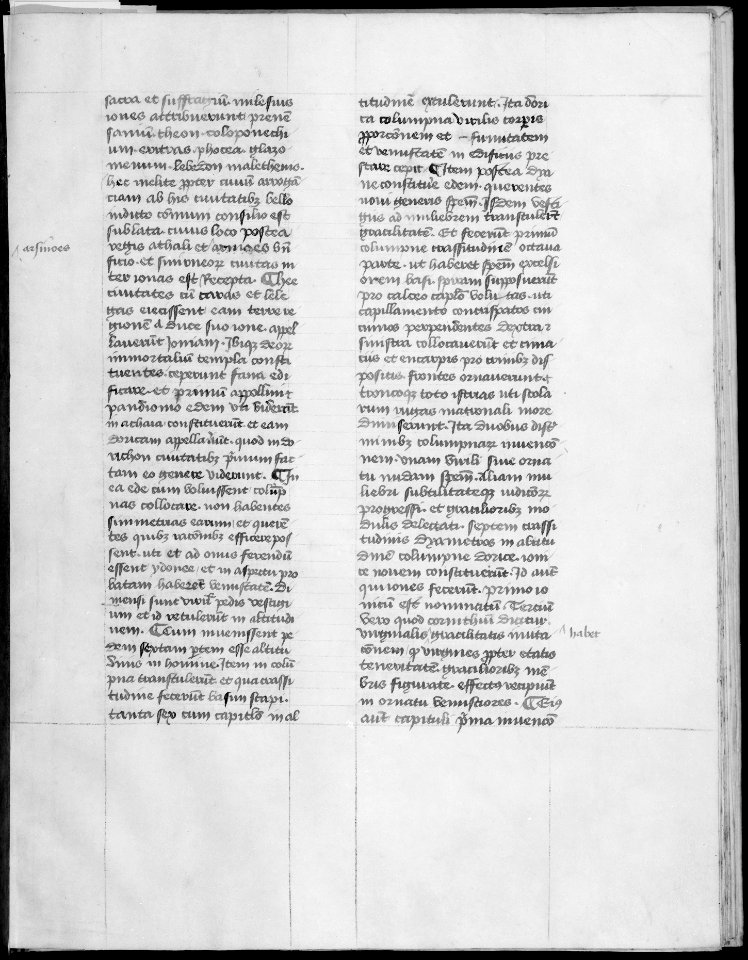 sacra et suffragiū. milesius
iones attribuerunt. prenē
samiū. theon. coloponechi
um. eritras. phocea. glazo
menum. lebedon maletheniu.
hec melite ꝓpter ciuiū arrogā
ciam ab his ciuitatibꝫ bello
indicto cōmuni consilio est
sublata. cuius loco postea
regis athali et arnioes bn̄
ficio. et simrneoꝝ ciuitas in
ter ionas est Recepta. Ɫhee
ciuitates cū caras et lele
gas eiecissent eam terre re
gionē a duce suo ione. appel
lauerūt Joniam. Ibiqꝫ deoꝝ
immortaliū templa consti
tuentes. ceperunt fana edi
ficare. et primū appollini
pandionio edem uti viderūt
in achaia constituerūt et eam
doricam appellauerūt. quod in do
richon ciuitatibꝫ p̄mum fac
tam eo genere viderunt. ¶ In
ea ede cum voluissent colūp
nas collocare. non habentes
simmetrias earum. et querē
tes quibꝫ racōnibꝫ efficere pos
sent. uti et ad onus ferendū
essent ydonee. et in aspectu pro
batam haberēt venustatē. Di
mensi sunt virilꝭ pedis vestigi
um et id retulerūt in altitudi
nem. ¶ Cum inuenissent pe
dem sextam ꝑtem esse altitu
dinis in homine. Item in colū
pna transtulerūt. et qua crassi
tudine fecerūt basim scapi.
tanta sex cum capitlo in al
titudinē extulerunt. Ita dori
ca columpna virilis corpis
ꝓporcōnem et firmitatem
et venustatē in edificiis pre
stare cepit. ¶ Item postea dya
ne constituere edem. querentes
noui generis spēm. Isdem vesti
giis ad muliebrem transtulerūt
gracilitatē. Et fecerūt primū
columpne crassitudinē octaua
parte. ut haberet spēm excelsi
orem basi. spiram supposuerūt
pro calceo capło volutas. uti
capillamento concrispatos cin
cinnos perpendentes dextra ⁊
sinistra collocauerūt et cima
ciis et encarpis pro crinibꝫ dis
positis. frontes ornauerunt. ⁊
troncoqꝫ toto istrias uti stola
rum rugas matronali more
dimiserunt. Ita duobus discͥ
minibꝫ columpnaꝝ inuencō
nem. vnam virili siue orna
tu nudam spēm. Aliam mu
liebri subtilitateqꝫ
progressi. et gracilioribꝫ mo
dulis delectati. septem crassi
tudinis dyametros in altitu
dinē columpne dorice. ioni
ce nouem constituerūt. Id aūt
qui iones fecerūt. primo io
nicū est nominatū. Tercium
vero quod corinthiū dicitur.
virginalis gracilitatis imita
cōnem qꝫ virgines ꝓpter etatis
teneritatē. gracilioribꝫ mē
bris figurate. effectꝰ recipiūt
in ornatu venustiores. ¶ Eiꝰ
aūt capituli p̄ma inuencō
arsinoes
habet